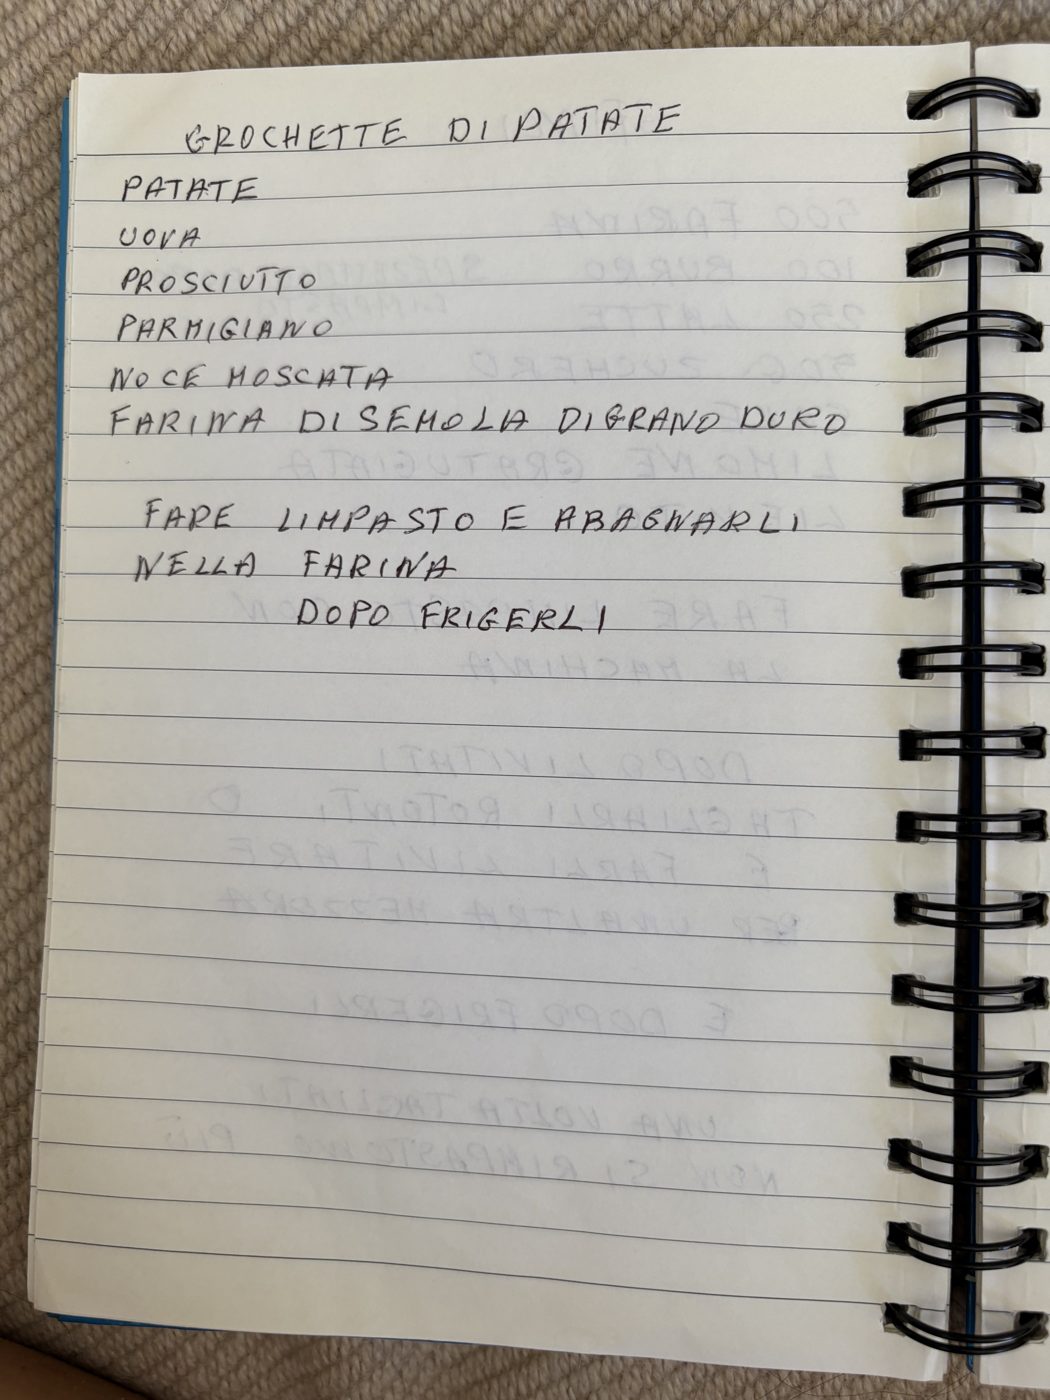 GROCHETTE DI PATATE
PATATE
UOVA
PROSCIUTTO
PARMIGIANO
NOCE MOSCATA
FARINA DI SEMOLA DI GRANO DURO
FARE LIMPASTO E ABAGNARLI
NELLA FARINA
DOPO FRIGERLI